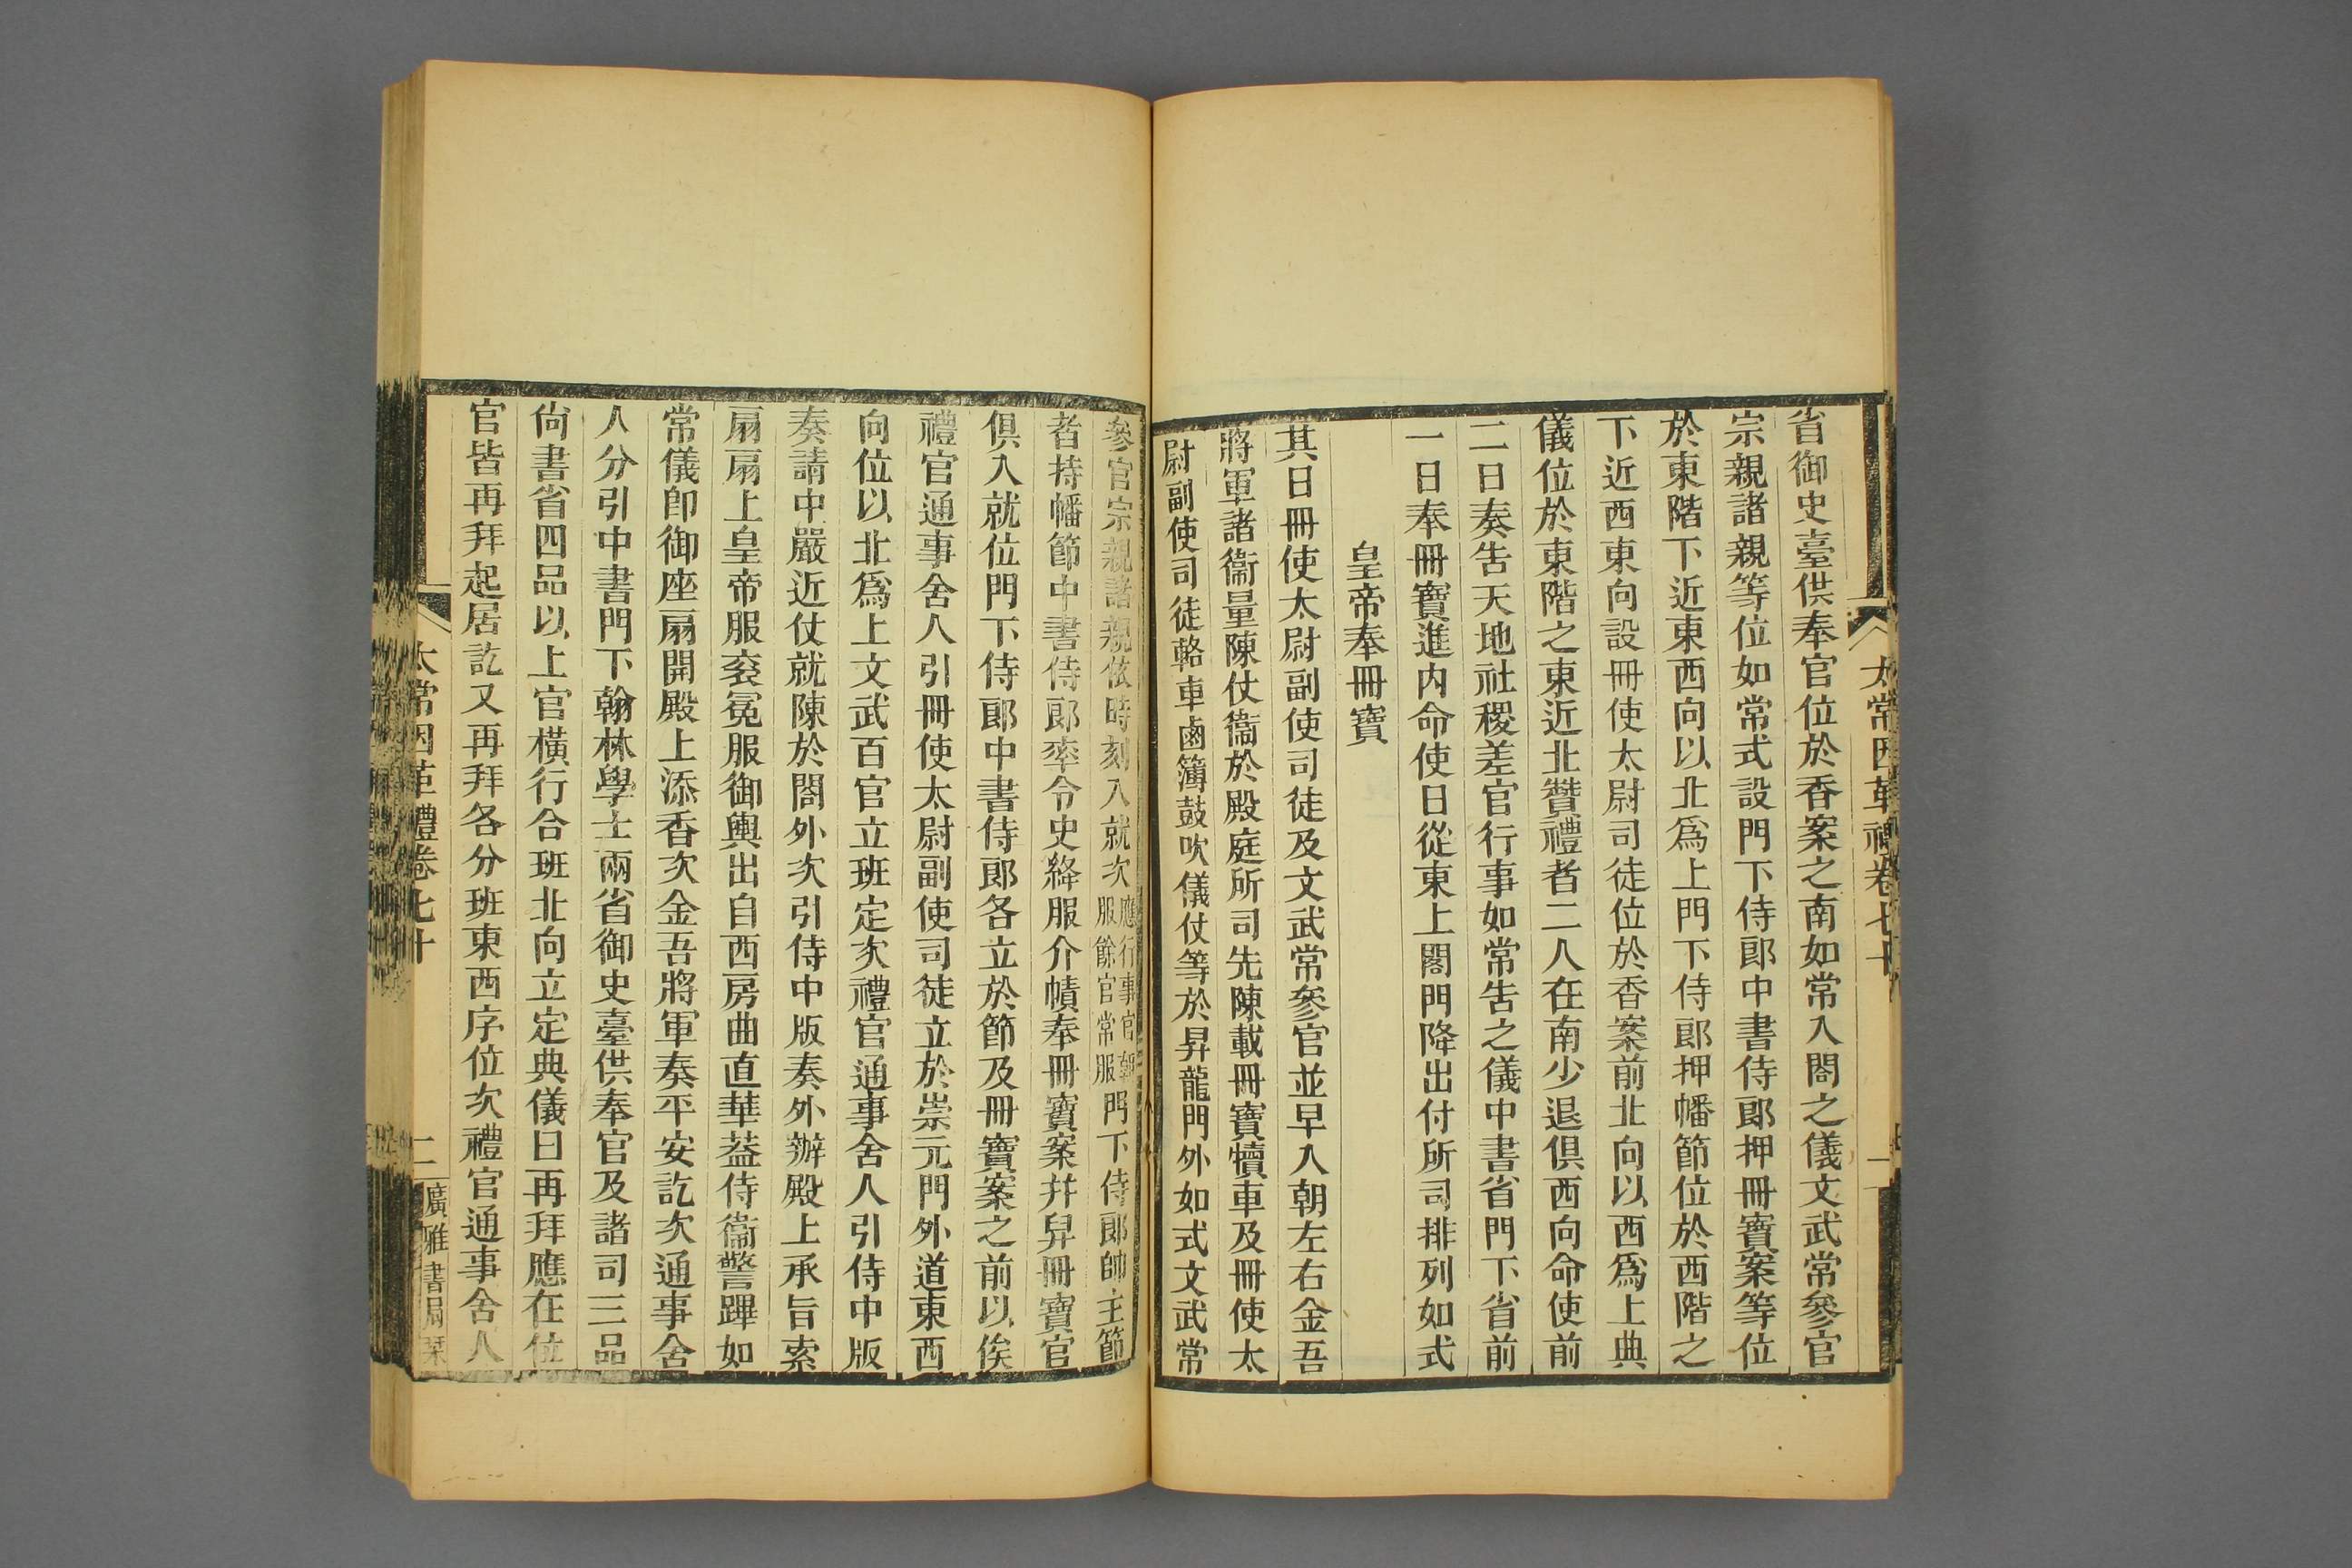 太常因革禮卷七十
一
省御史臺供奉官位於香案之南如常入閤之儀文武常參官
宗親諸親等位如常式設門下侍郎中書侍郎押冊寶案等位
於東階下近東西向以北爲上門下侍郎押幡節位於西階之
下近西東向設冊使太尉司徒位於香案前北向以西爲上典
儀位於東階之東近北贊禮者二人在南少退俱西向命使前
二日奏告天地社稷差官行事如常告之儀中書省門下省前
一日奉冊寶進内命使日從東上閤門降出付所司排列如式
皇帝奉冊寶
其日冊使太尉副使司徒及文武常參官並早入朝左右金吾
將軍諸衞量陳仗衞於殿庭所司先陳載冊寶犢車及冊使太
尉副使司徒輅車鹵簿鼓吹儀仗等於昇龍門外如式文武常
參官宗親諸親依時刻入就次應行事官朝服餘官常服門下侍郎帥主節
者持幡節中書侍郎率令史絳服介幘奉冊寶案并舁冊寶官
俱入就位門下侍郎中書侍郎各立於節及冊寶案之前以俟
禮官通事舍人引冊使太尉副使司徒立於崇元門外道東西
向位以北爲上文武百官立班定次禮官通事舍人引侍中版
奏請中嚴近仗就陳於閤外次引侍中版奏外辦殿上承旨索
扇扇上皇帝服衮冕服御輿出自西房曲直華蓋侍衞警蹕如
常儀卽御座扇開殿上添香次金吾將軍奏平安訖次通事舍
人分引中書門下翰林學士兩省御史臺供奉官及諸司三品
尙書省四品以上官橫行合班北向立定典儀曰再拜應在位
官皆再拜起居訖又再拜各分班東西序位次禮官通事舍人
太常因革禮卷七十
二
廣雅書局栞